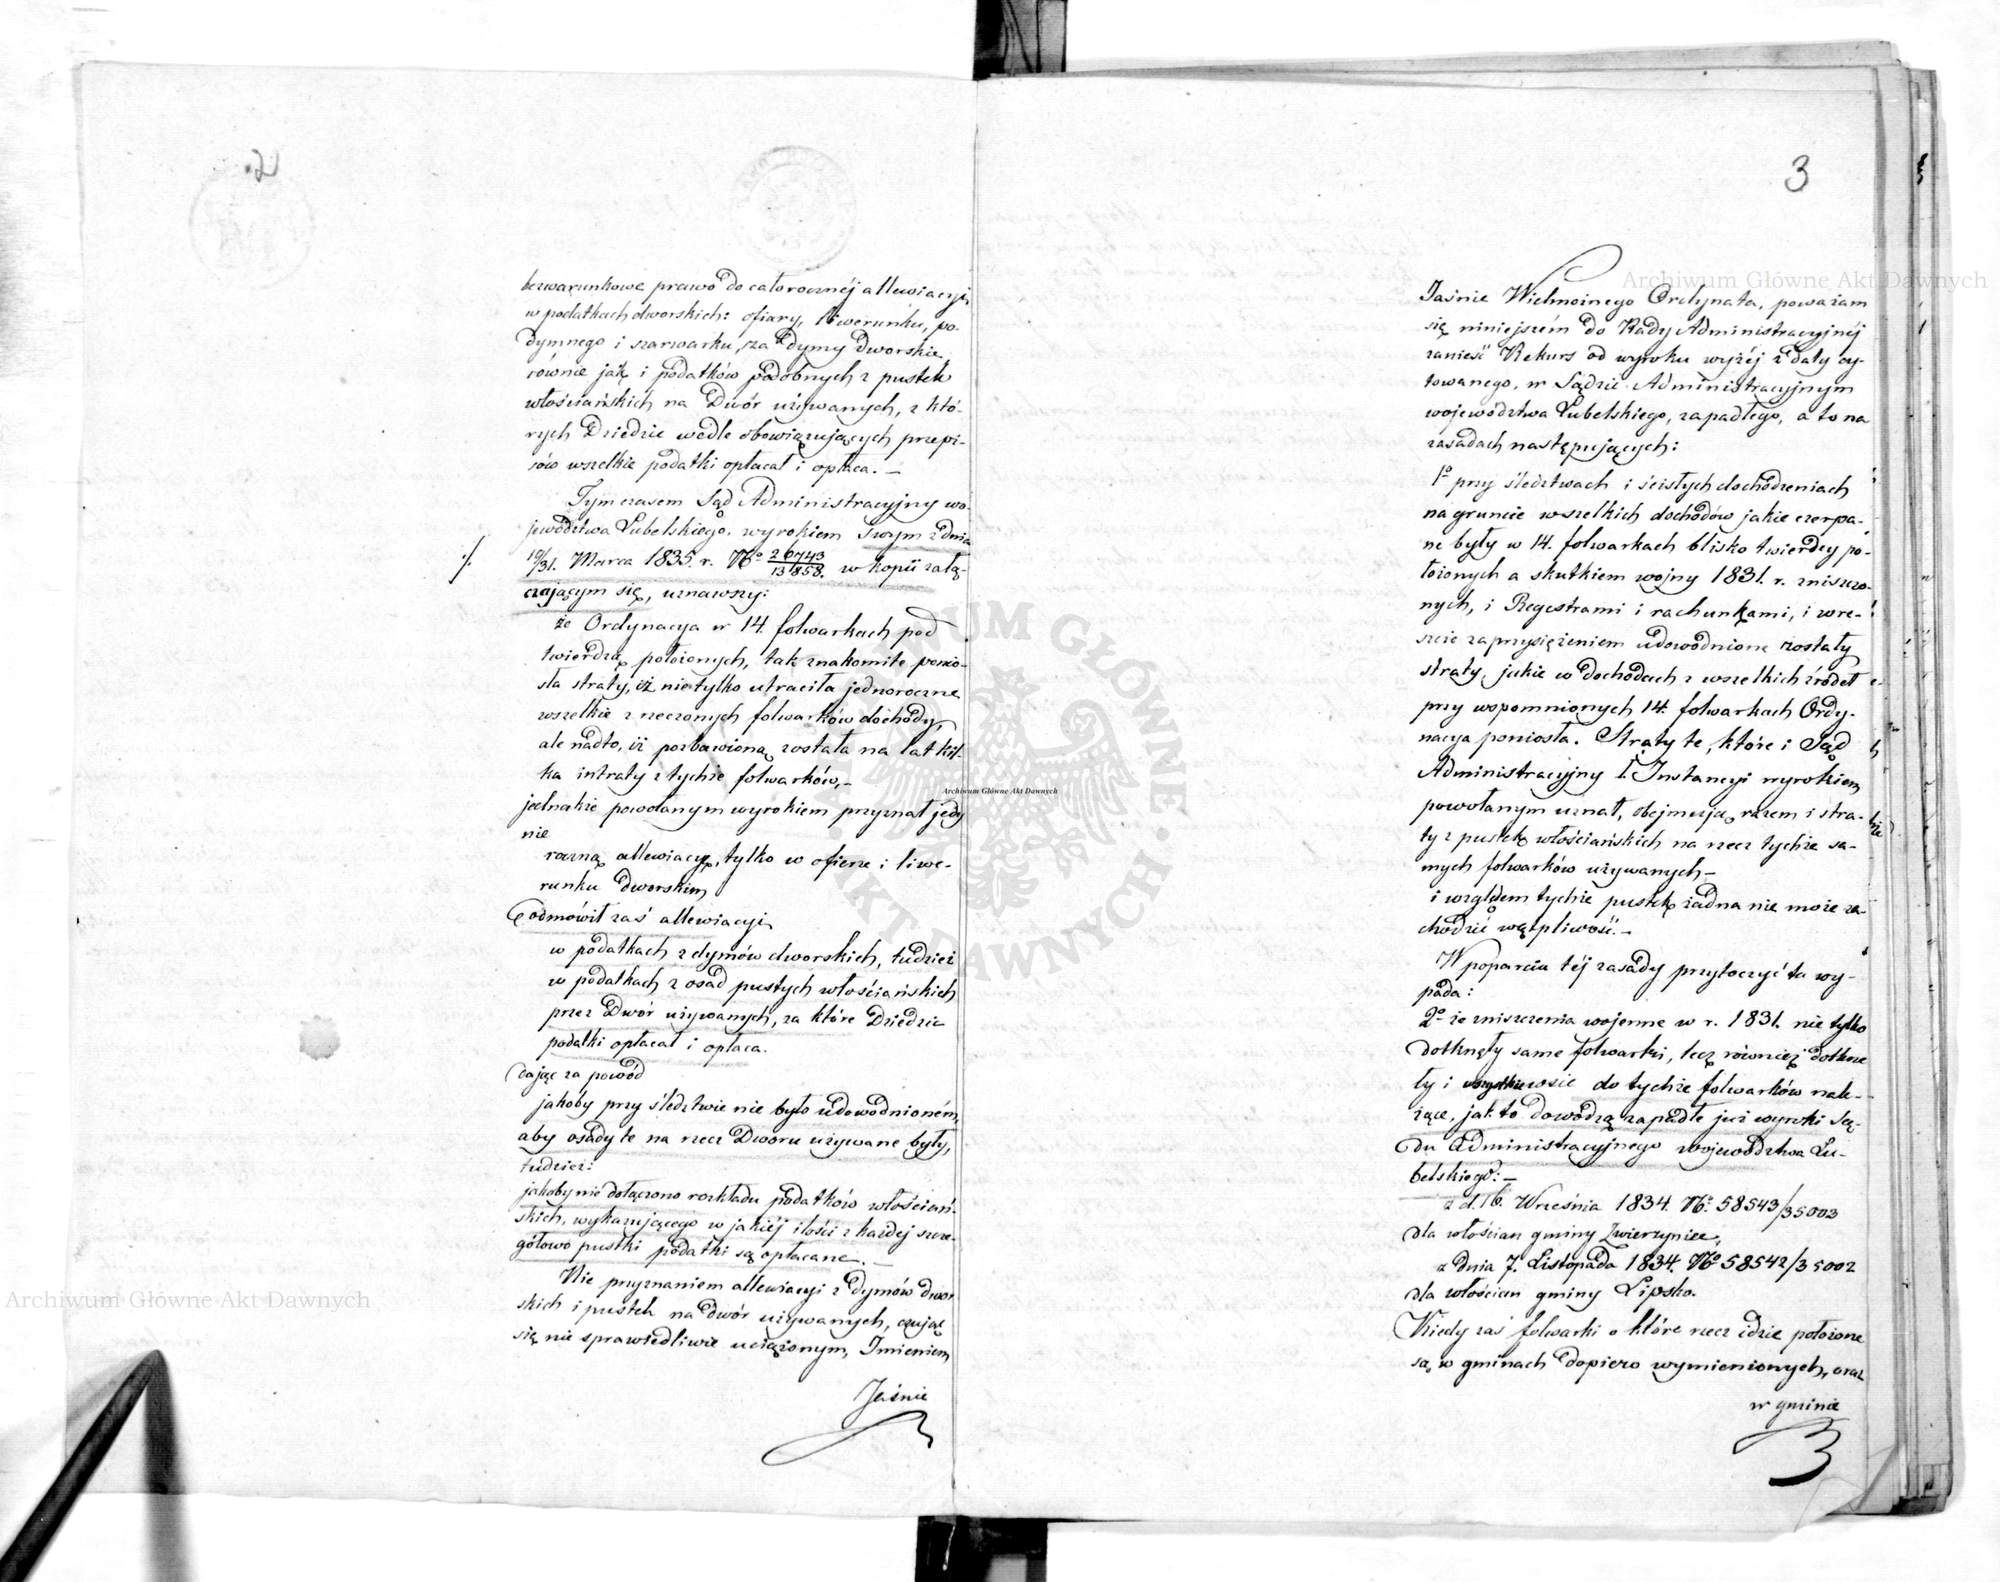 bezwarunkowe prawo do całorocznéj allewiacyi
w podatkach dworskich: ofiary, liwerunku, po-
dymnego i szarwarku, za dymy Dworskie,
równie jak i podatków podobnych z pustek
włościańskich na Dwór używanych, z któ-
rych Dziedzic wedle obowiązujących przepi-
sów wszelkie podatki opłacał i opłaca. —
Tymczasem Sąd Administracyjny wo-
jewództwa Lubelskiego, wyrokiem swym z dnia
./. 19/31. Marca 1835. r. No 26743/13858. w kopii załą-
czającym się, uznawszy:
że Ordynacya w 14. folwarkach pod
twierdzą położonych, tak znakomite ponio-
sła straty, iż nietylko utraciła jednoroczne
wszelkie z rzeczonych folwarków dochody,
ale nadto, iż pozbawioną została na lat kil-
ka intraty z tychże folwarków, —
jednakże powołanym wyrokiem przyznał jedy
nie
roczną allewiacyę, tylko w ofierze i liwe-
runku Dworskim
odmówił zaś allewiacyi
w podatkach z dymów dworskich, tudzież
w podatkach z osad pustych włościańskich
przez Dwór używanych, za które Dziedzic
podatki opłacał i opłaca.
dając za powód
jakoby przy śledztwie nie było udowodnioném,
aby osady te na rzecz Dworu używane były,
tudzież:
jakoby nie dołączono rozkładu podatków włościań-
skich, wykazującego w jakiéj ilości z każdej szcze-
gółowo pustki podatki są opłacane. —
Nie przyznaniem allewiacyi z Dymów dwor
skich i pustek na Dwór używanych, czując
się nie sprawiedliwie uciążonym, Imieniem
Jaśnie
3
Jaśnie Wielmożnego Ordynata, poważam
się niniejszém do Rady Administracyjnéj
zanieść Rekurs od wyroku wyżéj z daty cy-
towanego, w Sądzie Administracyjnym
województwa Lubelskiego, zapadłego, a to na
zasadach następujących:
1o przy śledztwach i ścisłych dochodzeniach
na gruncie wszelkich dochodów jakie czerpa-
ne były w 14. folwarkach blisko twierdzy po-
łożonych a skutkiem wojny 1831. r. zniszczo-
nych, i Regestrami i rachunkami, i wre-
szcie zaprzysiężeniem udowodnione zostały
straty, jakie w dochodach z wszelkich źródeł
przy wspomnionych 14. folwarkach Ordy-
nacya poniosła. Straty te, które i Sąd
Administracyjny I. Instancyi wyrokiem
powołanym uznał, obejmują razem i stra-
ty z pustek włościańskich na rzecz tychże sa-
mych folwarków używanych —
i względem tychże pustek żadna nie może za-
chodzić wątpliwość. —
W poparciu téj zasady przytoczyć tu wy-
pada:
2o że zniszczenia wojenne w r. 1831. nie tylko
dotknęły same folwarki, lecz również dotknę
ły i wszystkie wsie do tychże folwarków nale-
żące, jak to dowodzą zapadłe już wyroki Są-
du Administracyjnego województwa Lu-
belskiego: —
z d. 16. Września 1834. No. 58543/35003
dla włościan gminy Zwierzyniec,
z dnia 7. Listopada 1834. No 58542/35002
dla włościan gminy Lipsko.
Kiedy zaś folwarki o które rzecz idzie położone
są, w gminach dopiero wymienionych, oraz
w gminie
Archiwum Główne Akt Dawnych
Archiwum Główne Akt Dawnych
Archiwum Główne Akt Dawnych
ARCHIWUM GŁÓWNE AKT DAWNYCH